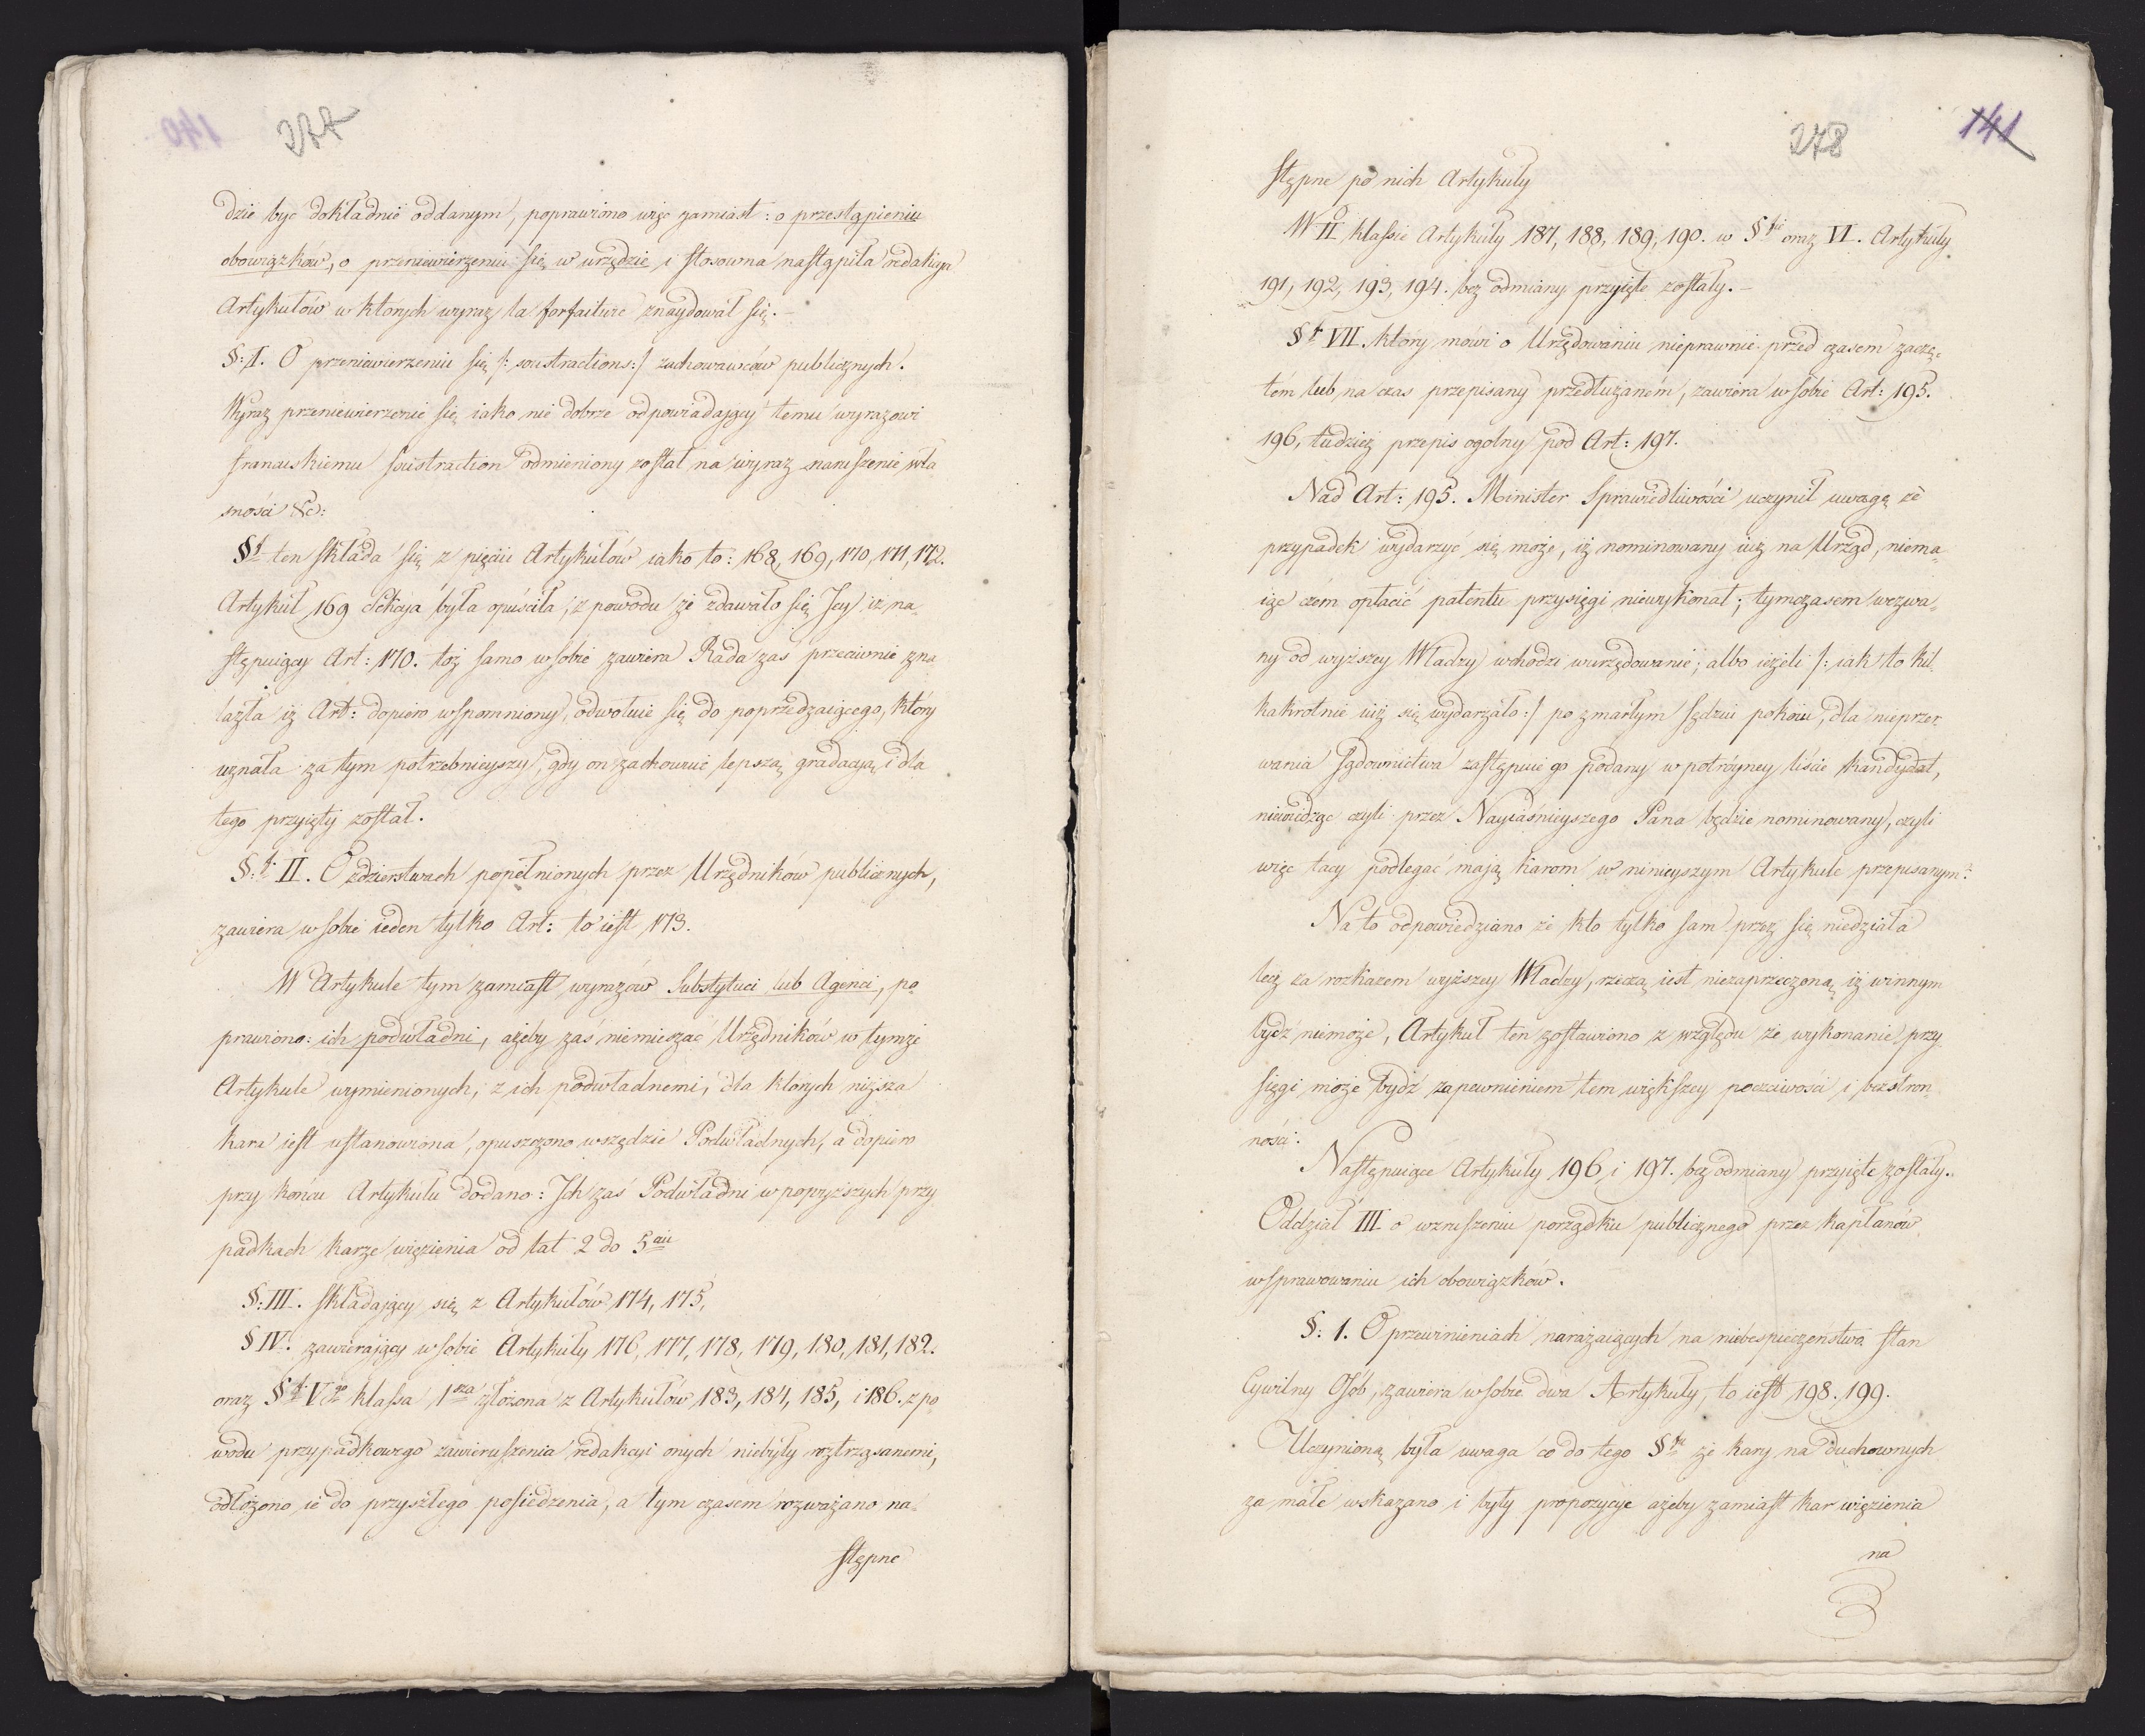 277
dzie być dokładnie oddanym, poprawiono więc zamiast: o przestąpieniu
obowiązków, o przeniewierzeniu się w urzędzie i stosowna nastąpiła redakcya
Artykułów w których wyraz la forfaiture znaydował się.-
§: I. O przeniewierzeniu się /: soustractions:/ zachowawców publicznych.
Wyraz przeniewierzenie się iako nie dobrze odpowiadający temu wyrazowi
francuskiemu soustraction odmieniony został na wyraz naruszenie wła
sności &c:
§f ten składa się z pięciu Artykułów iako to: 168, 169, 170, 171, 172.
Artykuł 169 Sekcya była opuściła, z powodu że zdawało się Jey iż na-
stępuiący Art: 170. toż samo w sobie zawiera Rada zaś przeciwnie zna
lazła iż Art: dopiero wspomniony, odwołuie się do poprzedzaiącego, który
uznała za tym potrzebnieyszy, gdy on zachowuie lepszą gradacyą i dla
tego przyięty został.
§:f II. O zdzierstwach popełnionych przez Urzędników publicznych,
zawiera w sobie ieden tylko Art: to iest 173.
W Artykule tym zamiast wyrazów Substytuci lub Agenci, po
prawiono: ich podwładni, ażeby zaś niemieszać Urzędników w tymże
Artykule wymienionych, z ich podwładnemi, dla których niższa
kara iest ustanowiona, opuszczono wszędzie Podwładnych, a dopiero
przy końcu Artykułu dodano: Ich zaś Podwładni w powyższych przy
padkach karze więzienia od lat 2 do 5ciu
§: III. składający się z Artykułów 174, 175,
§ IV. zawierający w sobie Artykuły 176, 177, 178, 179, 180, 181, 182.
oraz §f Vgo klassa 1sza złożona z Artykułów 183, 184, 185, i 186. z po
wodu przypadkowego zawieruszenia redakcyi onych niebyły roztrząsanemi,
odłożono ie do przyszłego posiedzenia, a tym czasem rozważano na-
stępne
278
141
stępne po nich Artykuły
W II klassie Artykuły 187, 188, 189, 190. w § oraz VI. Artykuły
191, 192, 193, 194. bez odmiany przyięte zostały.-
§f VII. który mówi o Urzędowaniu nieprawnie przed czasem zaczę-
tém lub na czas przepisany przedłużaném, zawiera w sobie Art: 195.
196, tudzież przepis ogolny pod Art: 197.
Nad Art: 195. Minister Sprawiedliwości uczynił uwagę że
przypadek wydarzyć się może, iż nominowany iuż na Urząd, niema-
iąc czem opłacić patentu przysięgi niewykonał; tymczasem wezwa-
ny od wyższey Władzy wchodzi w urzędowanie; albo ieżeli /: iak to kil
kakrotnie iuż się wydarzało:/ po zmarłym Sędziu pokoiu, dla nieprzer
wania Sądownictwa zastępuie go podany w potróyney liście kandydat,
niewiedząc czyli przez Nayiaśnieyszego Pana będzie nominowany, czyli
więc tacy podlegać maią karom w ninieyszym Artykule przepisanym?
Na to odpowiedziano że kto tylko sam przez się niedziała
lecz za rozkazem wyższey Władzy, rzeczą iest niezaprzeczoną iż winnym
bydź niemoże, Artykuł ten zostawiono z względu że wykonanie przy
sięgi może bydź zapewnieniem tem większey poczciwości i bezstron
ności.
Następuiące Artykuły 196 i 197. bez odmiany przyięte zostały.
Oddział III o wzruszeniu porządku publicznego przez kapłanów
w sprawowaniu ich obowiązków.
§: 1. O przewinieniach narażaiących na niebespieczeństwa stan
Cywilny Osób, zawiera w sobie dwa Artykuły, to iest 198. 199.
Uczynioną była uwaga co do tego §fu że kary na duchownych
za małe wskazano i były propozycye ażeby zamiast kar więzienia
na